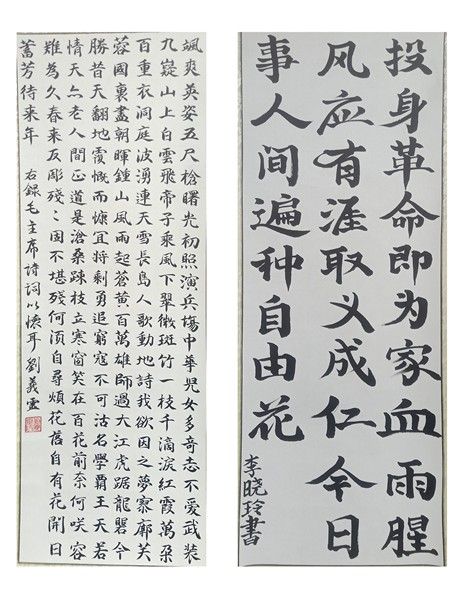 颯爽英姿五尺槍曙光初照演兵塲中華兒女多奇志不愛武装
九嶷山上白雲飛帝子乘風下翠微斑竹一枝千滴淚紅霞萬朶
百重衣洞庭波湧連天雪長島人歌動地詩我欲因之夢寥廓芙
蓉國裏盡朝暉鍾山風雨起蒼黄百萬雄師過大江虎踞龍盤今
勝昔天翻地覆慨而慷宜將剩勇追窮寇不可沽名學霸王天若
情天亦老人間正道是滄桑疎枝立寒窗笑在百花前奈何咲容
難為久春來反彫殘々固不堪殘何須自尋煩花落自有花開日
蓄芳待来年
右録毛主席詩詞以懷耳 劉義靈
投身革命即为家血雨腥
风应有涯取义成仁今日
事人间遍种自由花
李晓玲書